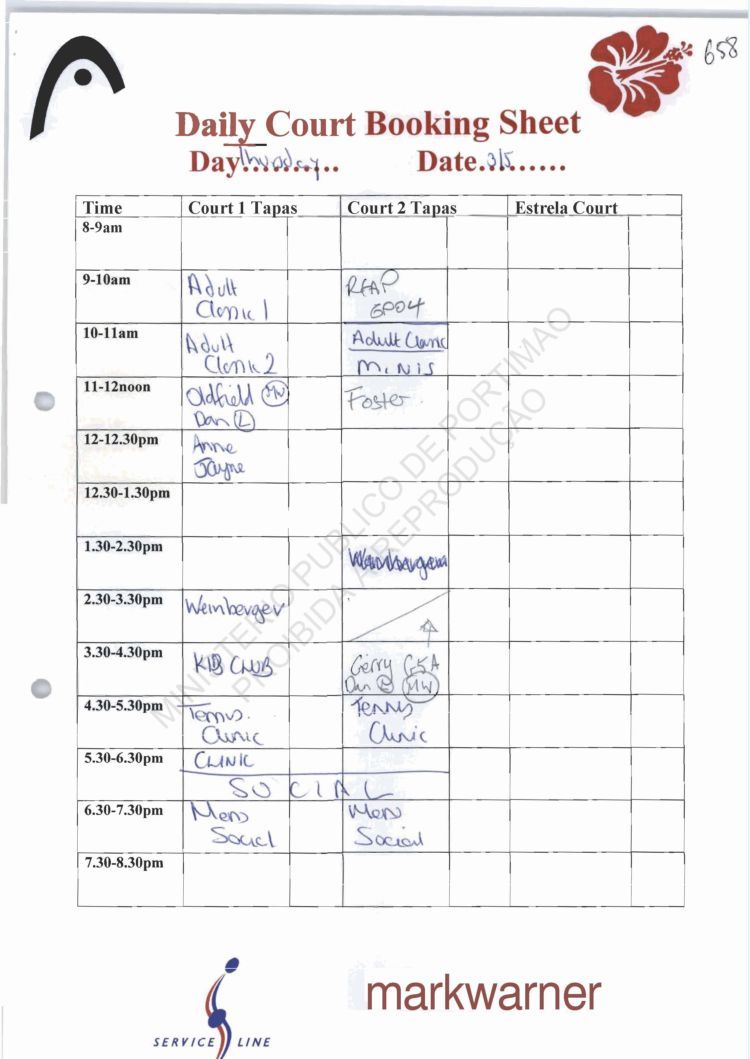 658
Daily Court Booking Sheet
Day Thursday Date 3/5
Time Court 1 Tapas Court 2 Tapas Estrela Court
8-9am
9-10am Adult REAP
Clinic 1 GP04
10-11am Adult Adult Clinic
Clinic 2 MINIS
11-12noon Oldfield MW Foster
Dan L
12-12.30pm Anne
Jayne
12.30-1.30pm
1.30-2.30pm
2.30-3.30pm Weinberger
3.30-4.30pm KID CLUB Gerry G5A
Dan MW
4.30-5.30pm Tennis Tennis
Clinic Clinic
5.30-6.30pm CLINIC
SOCIAL
6.30-7.30pm Mens Mens
Social Social
7.30-8.30pm
MINISTERIO PUBLICO DE PORTIMAO
PROIBIDA A REPRODUÇÃO
SERVICE LINE
markwarner